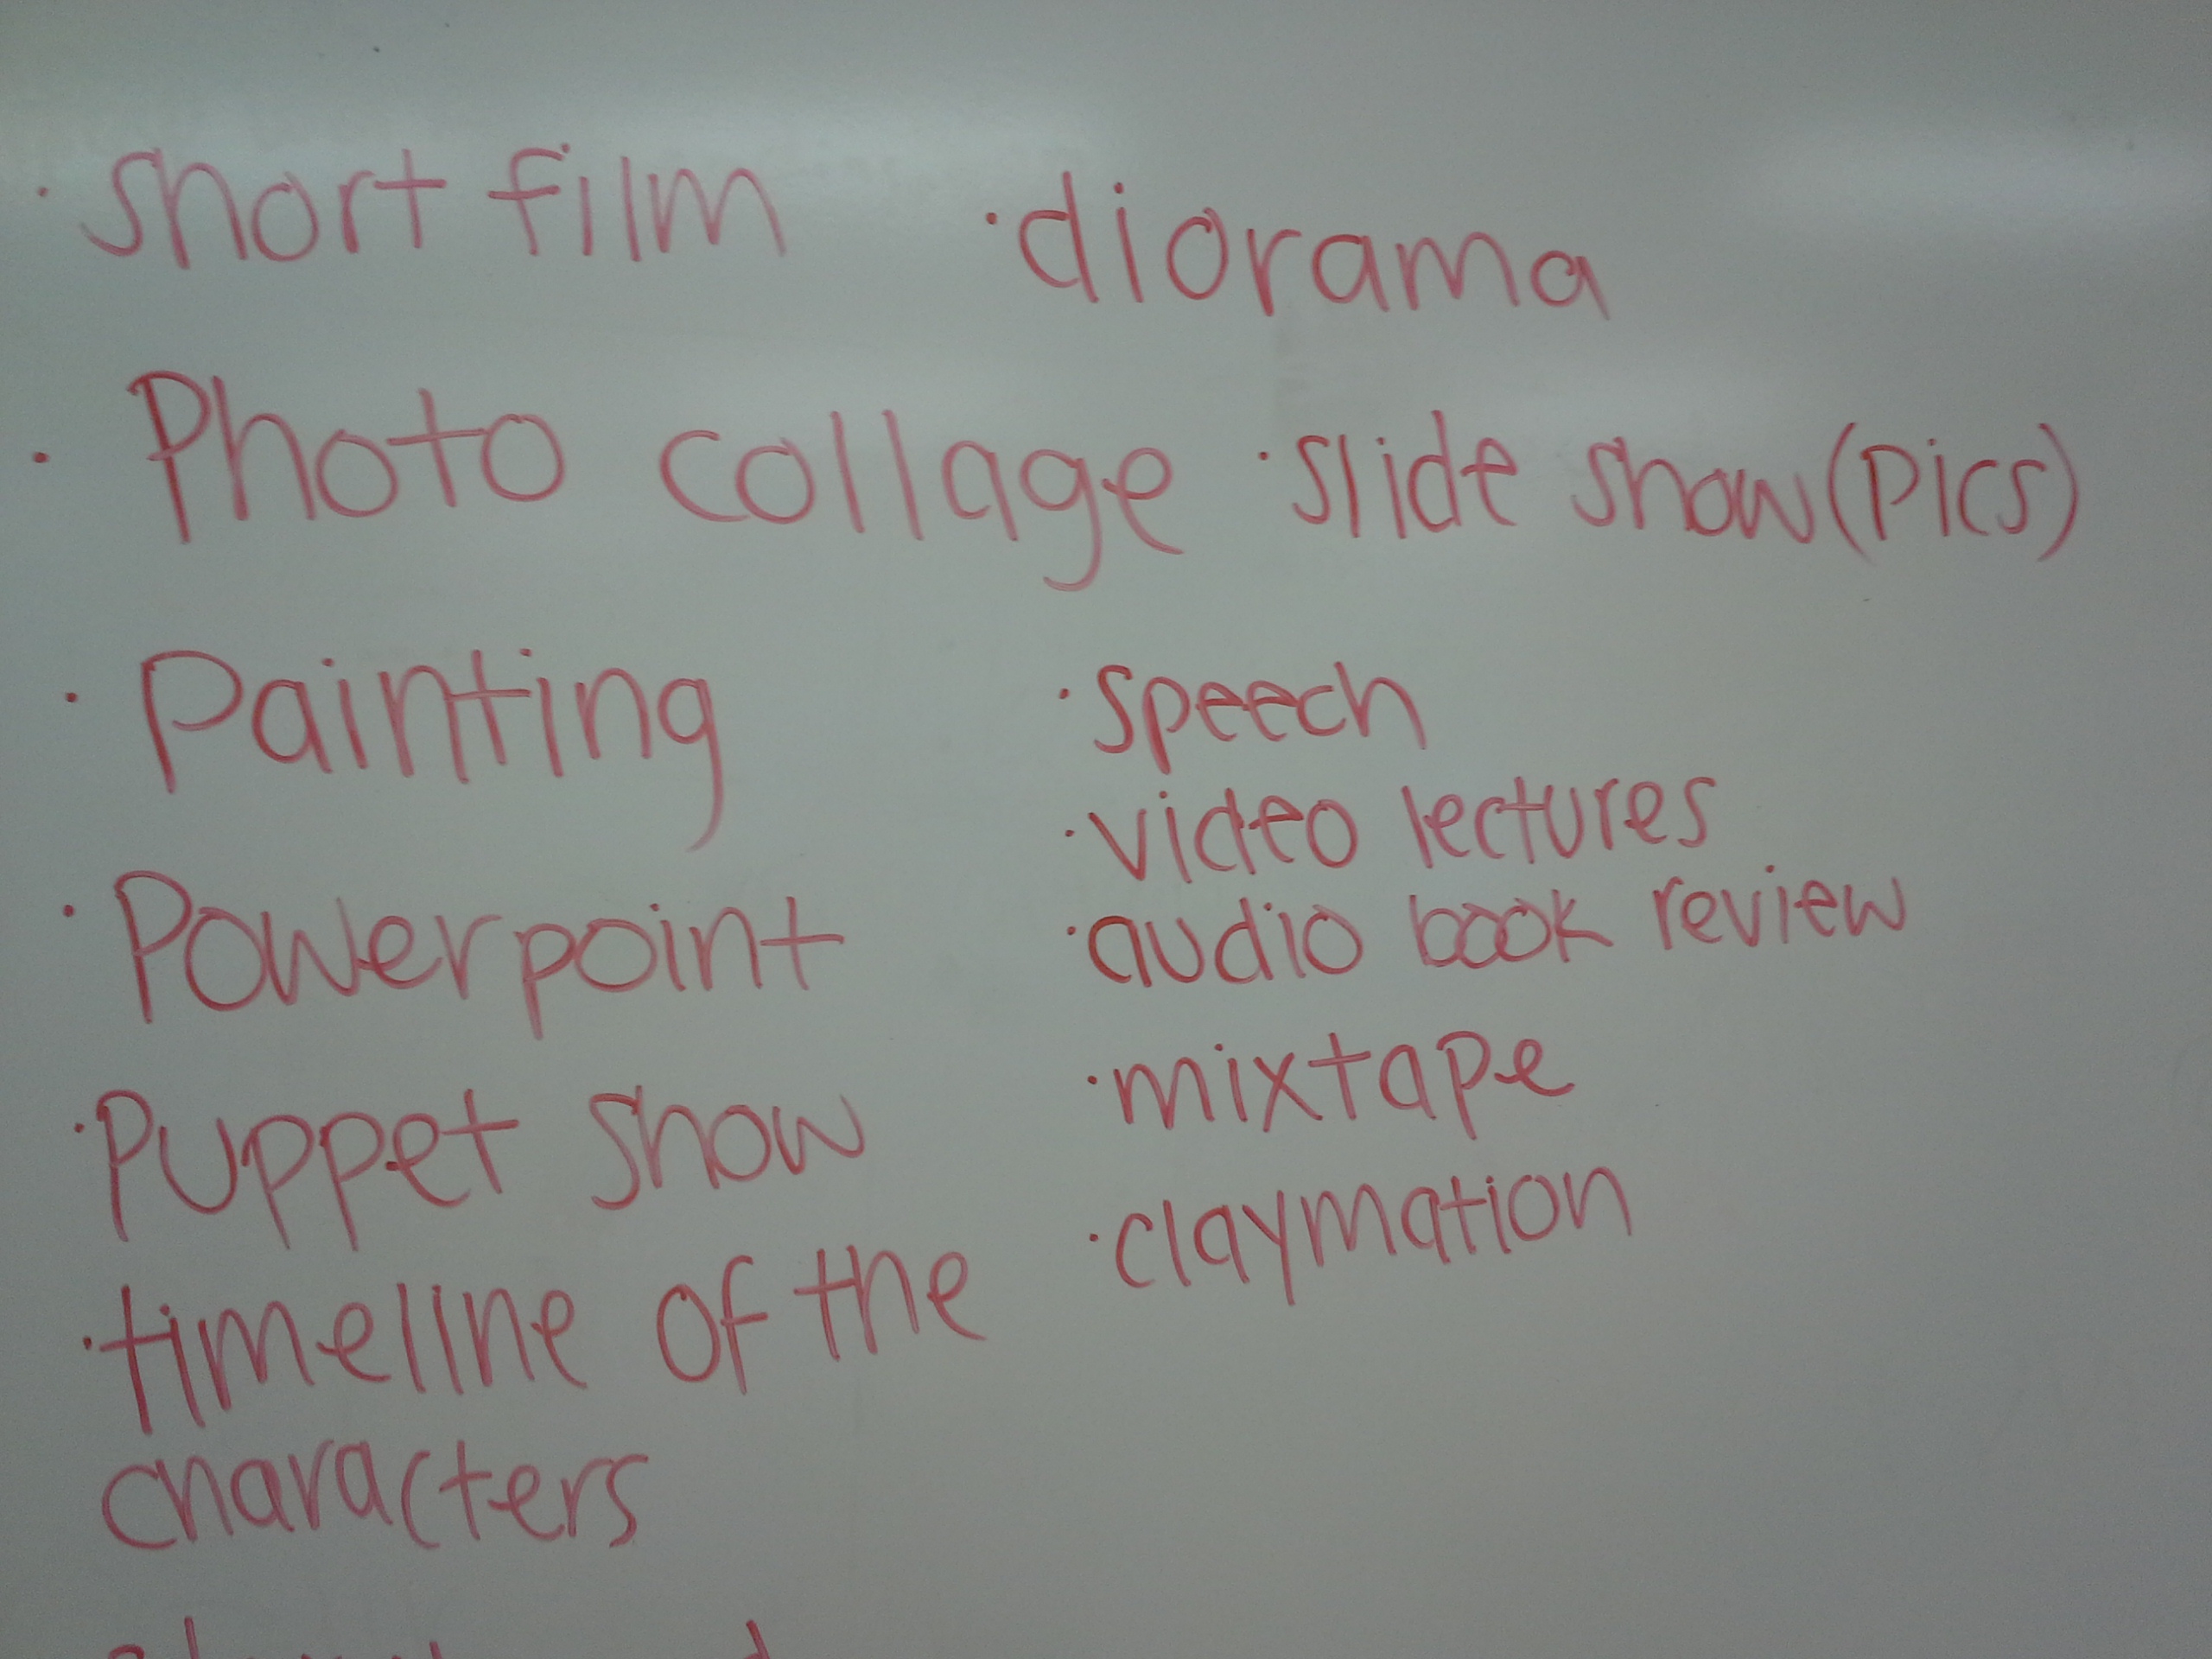 · short film
· Photo collage
· Painting
· Powerpoint
· Puppet show
· timeline of the
characters
· diorama
· slide show (pics)
· speech
· video lectures
· audio book review
· mixtape
· claymation